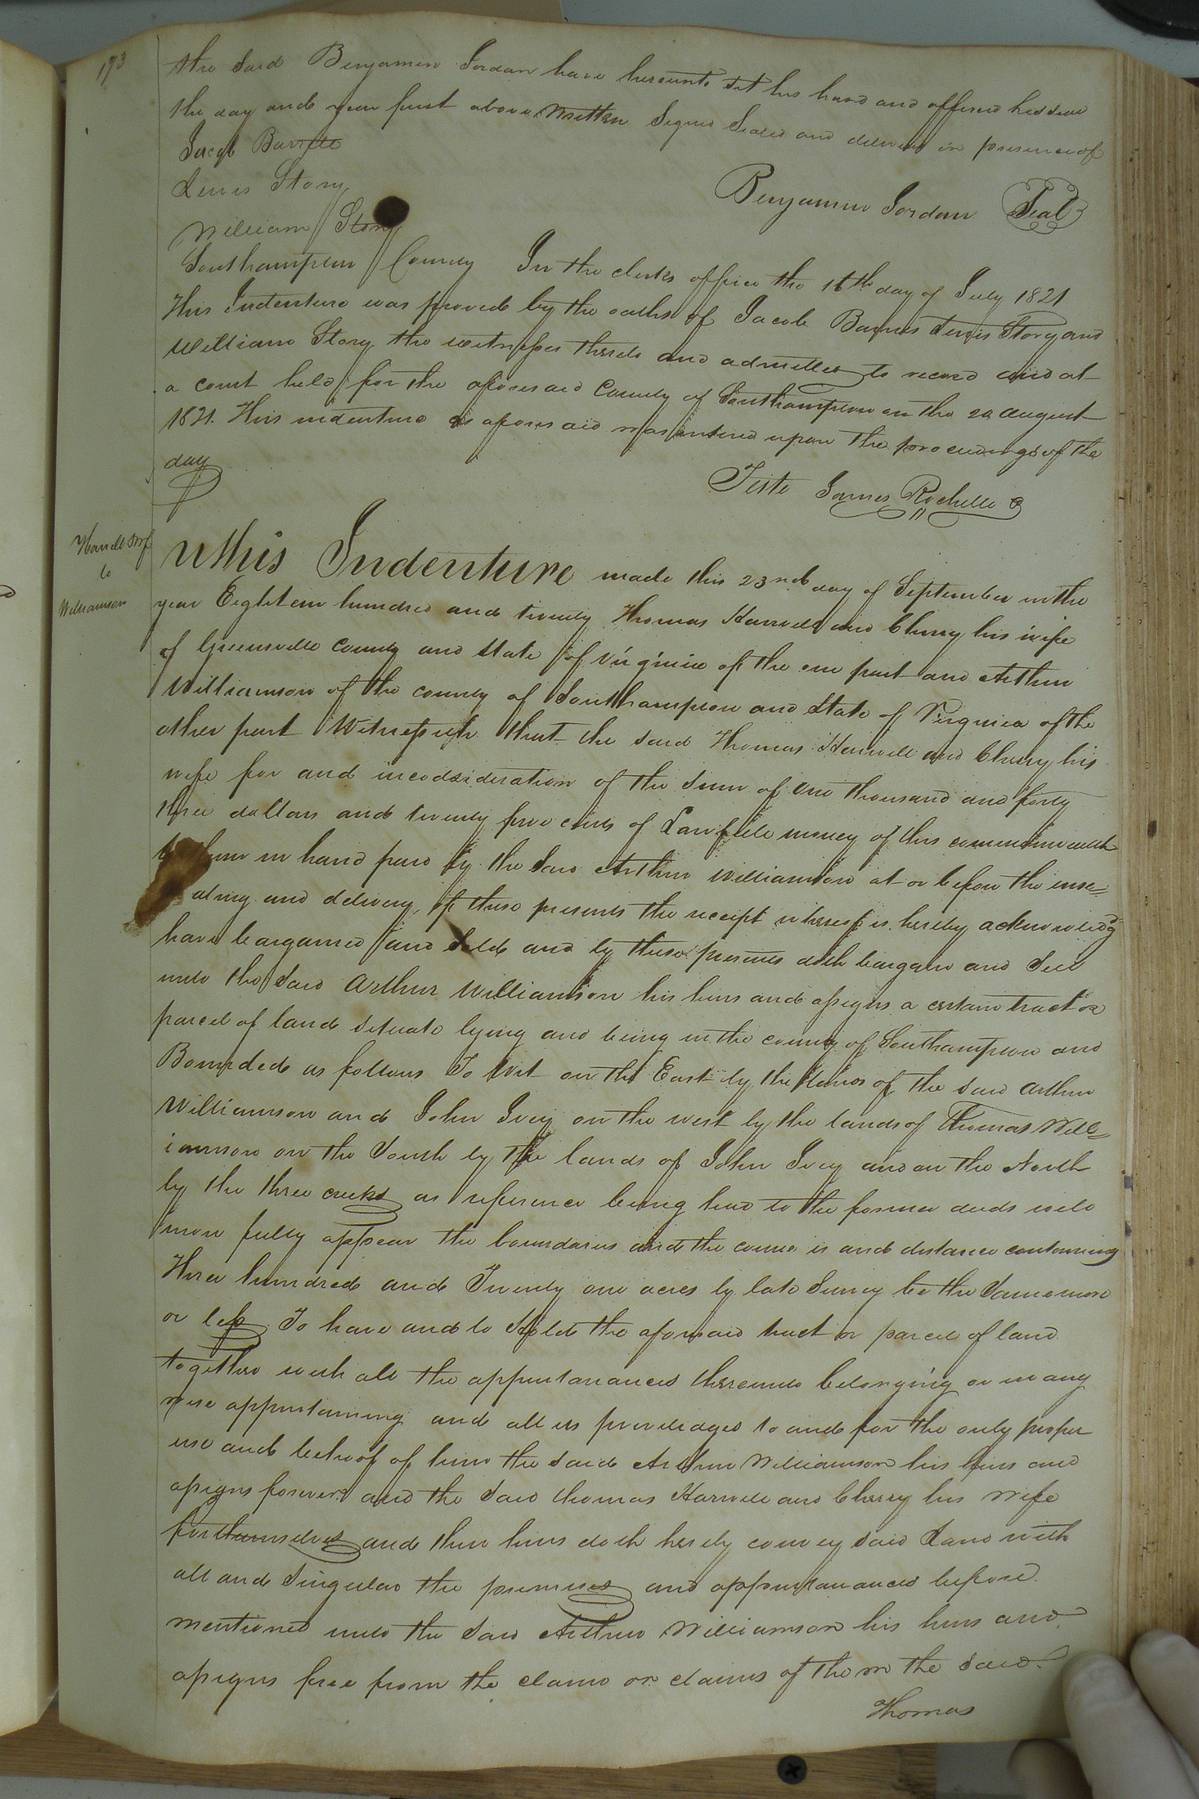 173
the said Benjamin Jordan have hereunto set his hand and affixed his seal
the day and year first above Written Signed Sealed and delivered in presence of
Jacob Barnes
Lewis Story
Benjamin Jordan Seal
William Story
Southampton County In the clerks office the 16th day of July 1821
This Indenture was proved by the oaths of Jacob Barnes Lewis Story and
William Story the witnesses thereto and admitted to record and at
a court held for the aforesaid County of Southampton on the 20 august
1821. This indenture as aforesaid was entered upon the proceedings of the
day
Teste James Rochelle C
Harwell & wf
to
Williamson
This Indenture made this 23rd day of September in the
year Eighteen hundred and twenty Thomas Harwell and Cherry his wife
of Greensville County and State of Virginia of the one part and Arthur
Williamson of the county of Southampton and State of Virginia of the
other part Witnesseth that the said Thomas Harwell and Cherry his
wife for and inconsideration of the sum of one thousand and forty
three dollars and twenty five cents of Lawfull money of this commonwealth
to them in hand paid by the said Arthur Williamson at or before the
aling and delivery of these presents the receipt whereof is hereby acknowledg
have bargained and Sold and by these presents doth bargain and Sell
unto the said Arthur Williamson his heirs and assigns a certain tract or
parcel of land situate lying and being in the county of Southampton and
Bounded as follows To Wit on the East by the lands of the said Arthur
Williamson and John Ivey on the west by the lands of Thomas Will=
iamson on the South by the lands of John Ivey and on the North
by the three creeks as reference being had to the former deeds will
more fully appear the boundaries and the course is and distance containing
Three hundred and Twenty one acres by late Survey be the Same more
or less To have and to Hold the aforesaid tract or parcel of land
together with all the appurtanances thereunto belonging or in any
wise appurtaining and all its priviledges to and for the only proper
use and behoof of him the said Arthur Williamson his heirs and
assigns forever and the said Thomas Harwell and Cherry his Wife
for themselves and their heirs doth hereby convey said Land with
all and Singular the premises and appurtanances before
mentioned unto the said Arthur Williamson his heirs and
assigns free from the claim or claims of them the said
Thomas